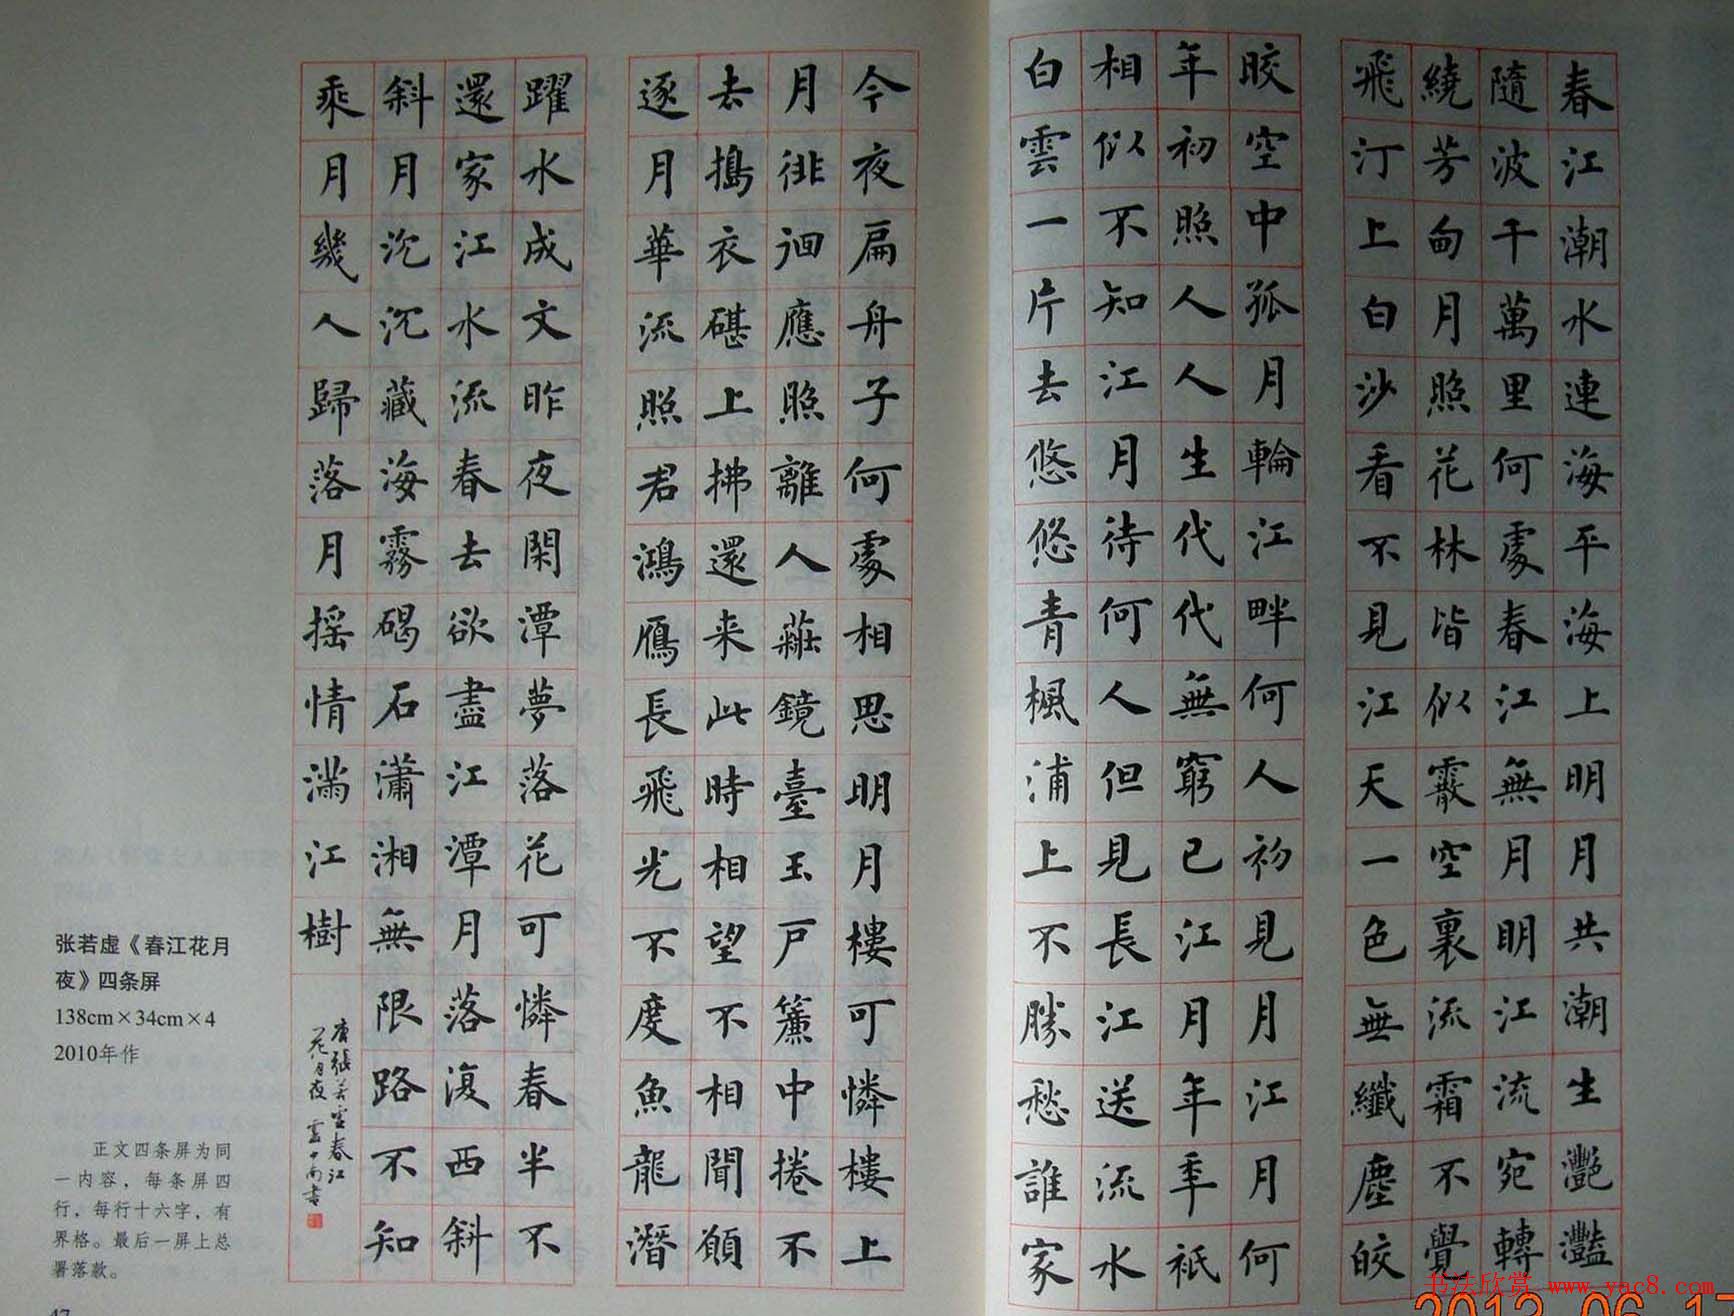 春江潮水連海平海上明月共潮生灧灩
隨波千萬里何處春江無月明江流宛轉
繞芳甸月照花林皆似霰空裏流霜不覺
飛汀上白沙看不見江天一色無纖塵皎
皎空中孤月輪江畔何人初見月江月何
年初照人人生代代無窮已江月年年祇
相似不知江月待何人但見長江送流水
白雲一片去悠悠青楓浦上不勝愁誰家
今夜扁舟子何處相思明月樓可憐樓上
月徘徊應照離人妝鏡臺玉戶簾中捲不
去搗衣碪上拂還来此時相望不相聞願
逐月華流照君鴻鴈長飛光不度魚龍潛
躍水成文昨夜閑潭夢落花可憐春半不
還家江水流春去欲盡江潭月落復西斜
斜月沉沉藏海霧碣石瀟湘無限路不知
乘月幾人歸落月摇情滿江樹
唐張若虛春江
花月夜
张若虚《春江花月
夜》四条屏
138cm×34cm×4
2010年作
正文四条屏为同
一内容，每条屏四
行，每行十六字，有
界格。最后一屏上总
署落款。
47
书法欣赏 www.yac8.com
2013-06-17